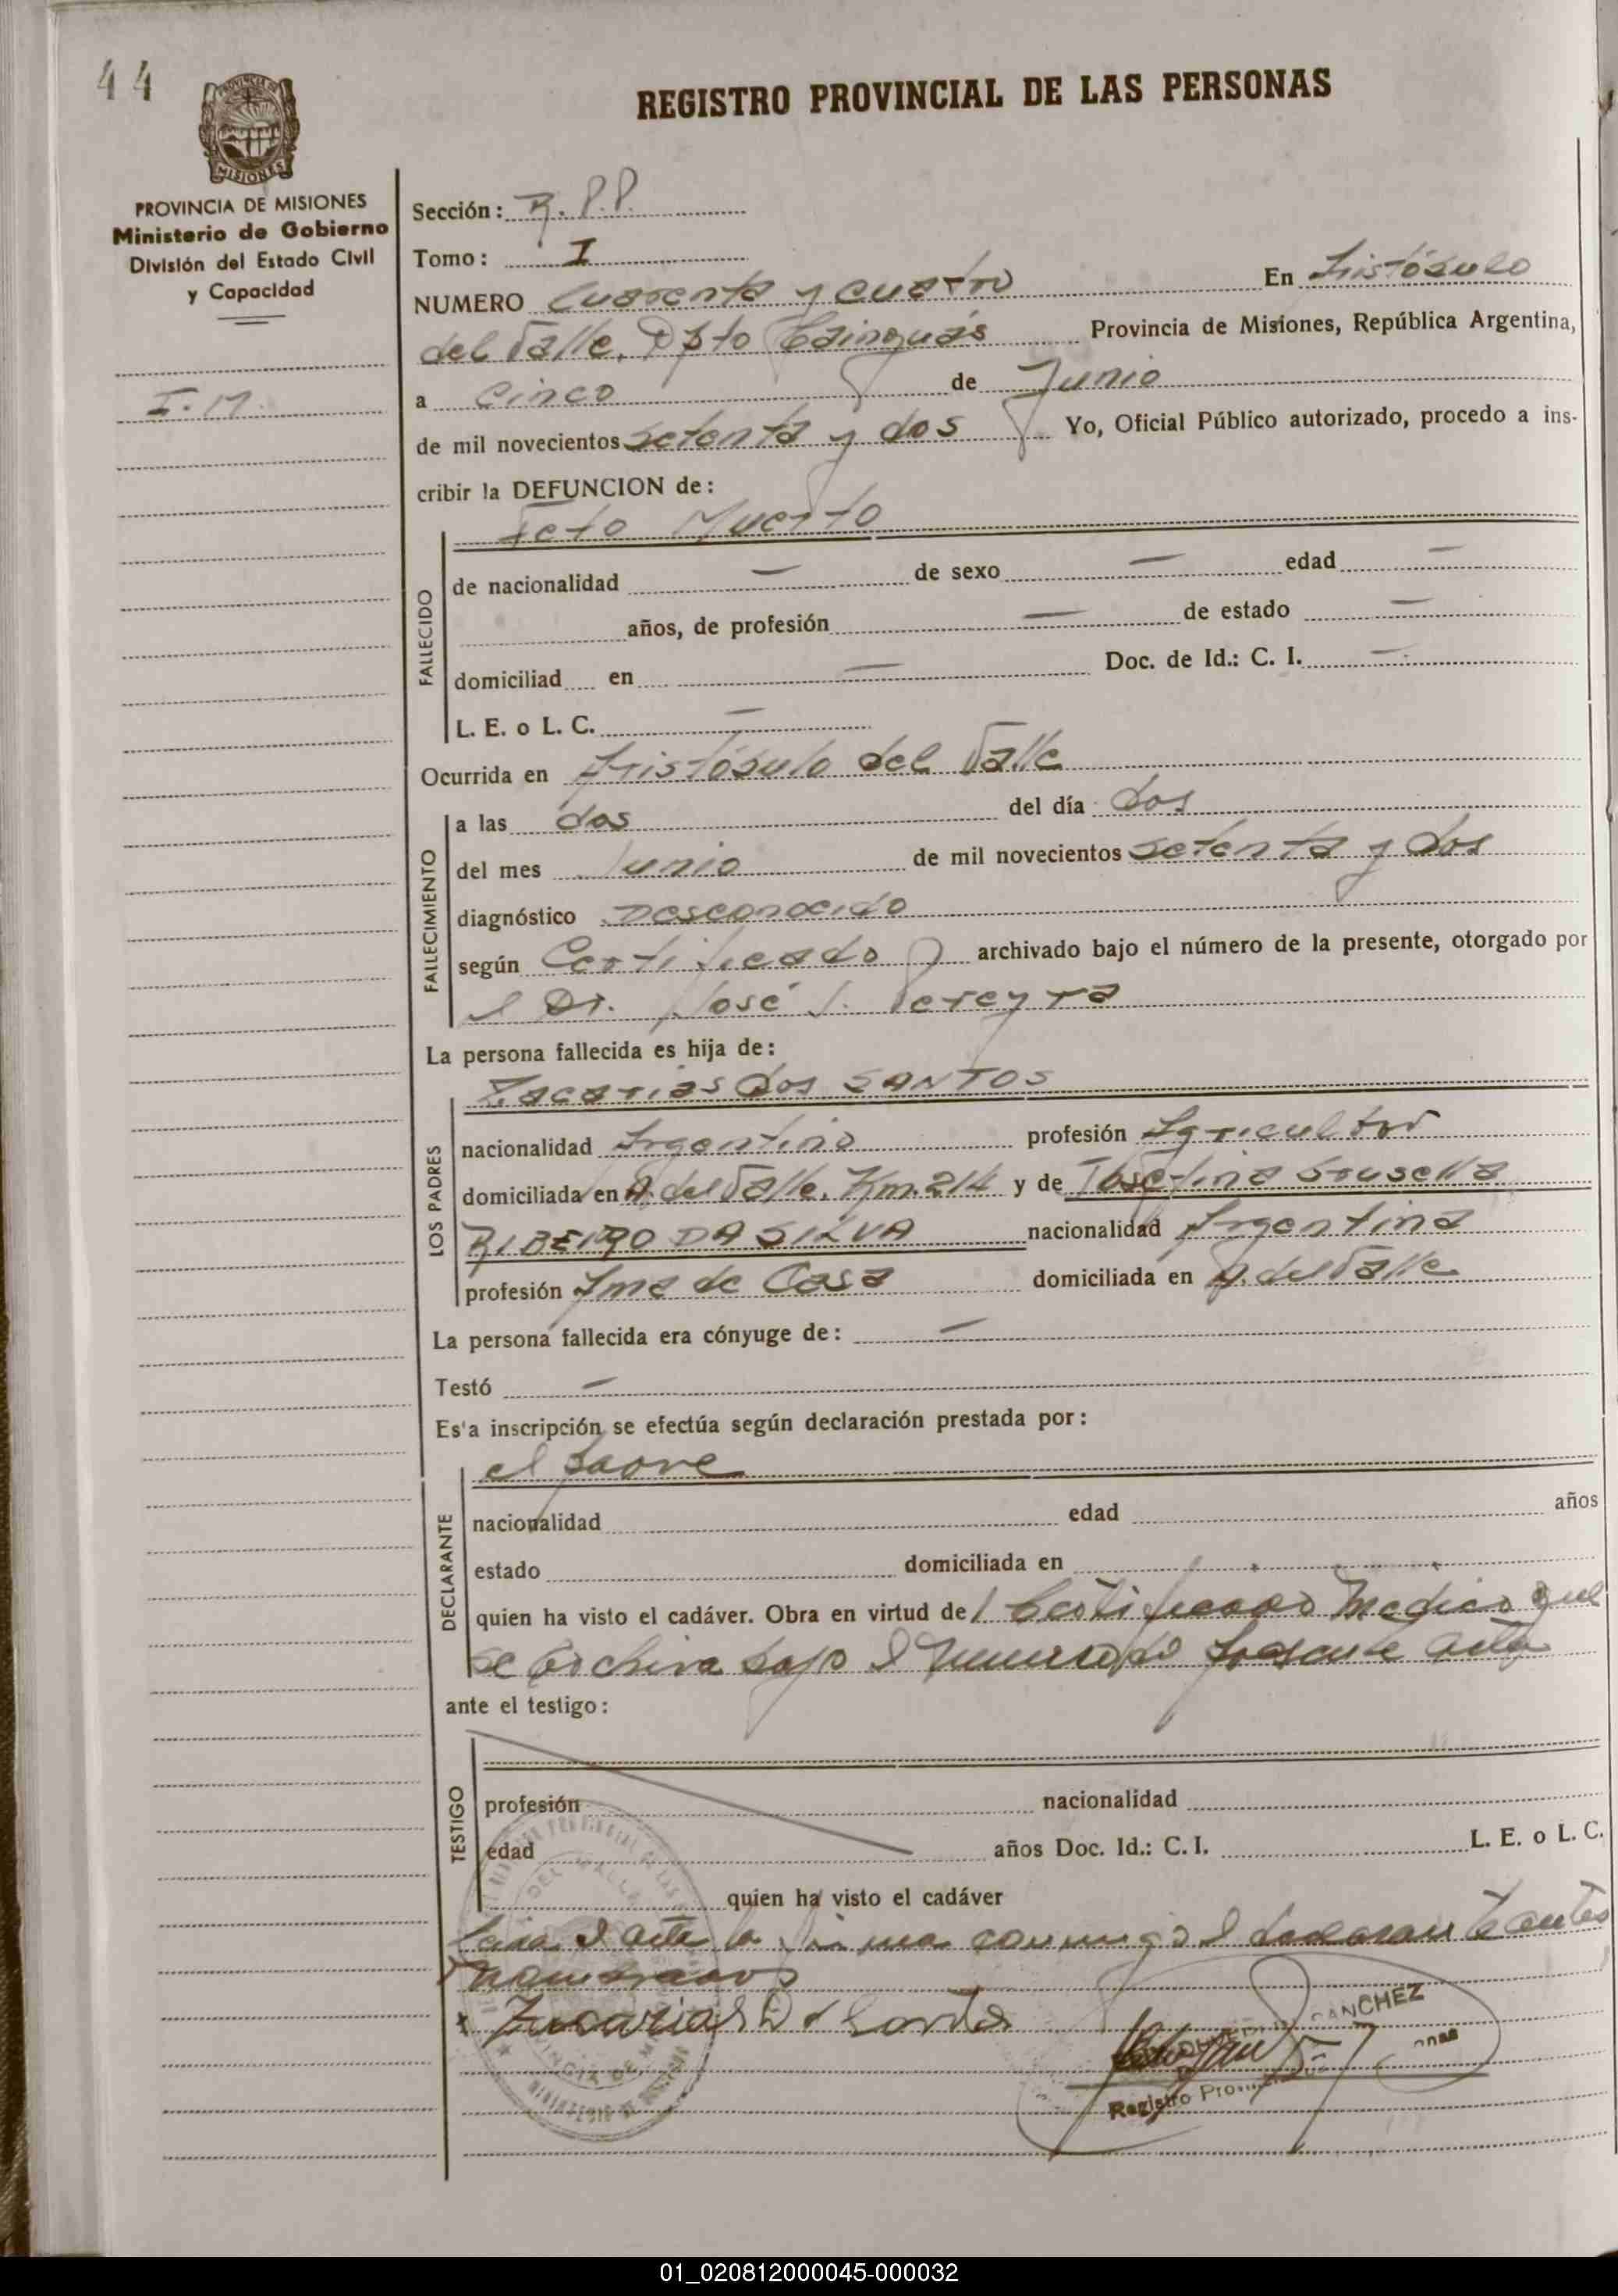 44
REGISTRO PROVINCIAL DE LAS PERSONAS
MISIONES
PROVINCIA DE MISIONES
Ministerio de Gobierno
División del Estado Civil
y Capacidad
I. M.
Sección: R. P.P.
Tomo: I
NUMERO Cuarenta y cuatro En Aristóbulo
del Valle, Dpto Cainguás Provincia de Misiones, República Argentina,
a cinco de Junio
de mil novecientos setenta y dos Yo, Oficial Público autorizado, procedo a ins-
cribir la DEFUNCION de:
Feto Muerto
FALLECIDO
de nacionalidad — de sexo — edad —
años, de profesión — de estado —
domiciliad en — Doc. de Id.: C. I. —
L. E. o L. C. —
Ocurrida en Aristóbulo del Valle
FALLECIMIENTO
a las dos del día dos
del mes Junio de mil novecientos setenta y dos
diagnóstico Desconocido
según Certificado archivado bajo el número de la presente, otorgado por
el Dr. José J. Pereyra
La persona fallecida es hija de:
Zacarias dos SANTOS
LOS PADRES
nacionalidad Argentino profesión Agricultor
domiciliada en A. del Valle, Km. 214 y de
RIBEIRO DA SILVA nacionalidad Argentina
profesión Ama de Casa domiciliada en A. del Valle
La persona fallecida era cónyuge de: —
Testó —
Es'a inscripción se efectúa según declaración prestada por:
el padre
DECLARANTE
nacionalidad edad años
estado domiciliada en
quien ha visto el cadáver. Obra en virtud del Certificado Medico que
se archiva bajo el numero de presente acta
ante el testigo:
TESTIGO
profesión nacionalidad
edad años Doc. Id.: C. I. L. E. o L. C.
quien ha visto el cadáver
Leida el acta la firma conmigo el declarante antes
nombrado
Zacarias D s Santos
SANCHEZ
Registro
01_020812000045-000032